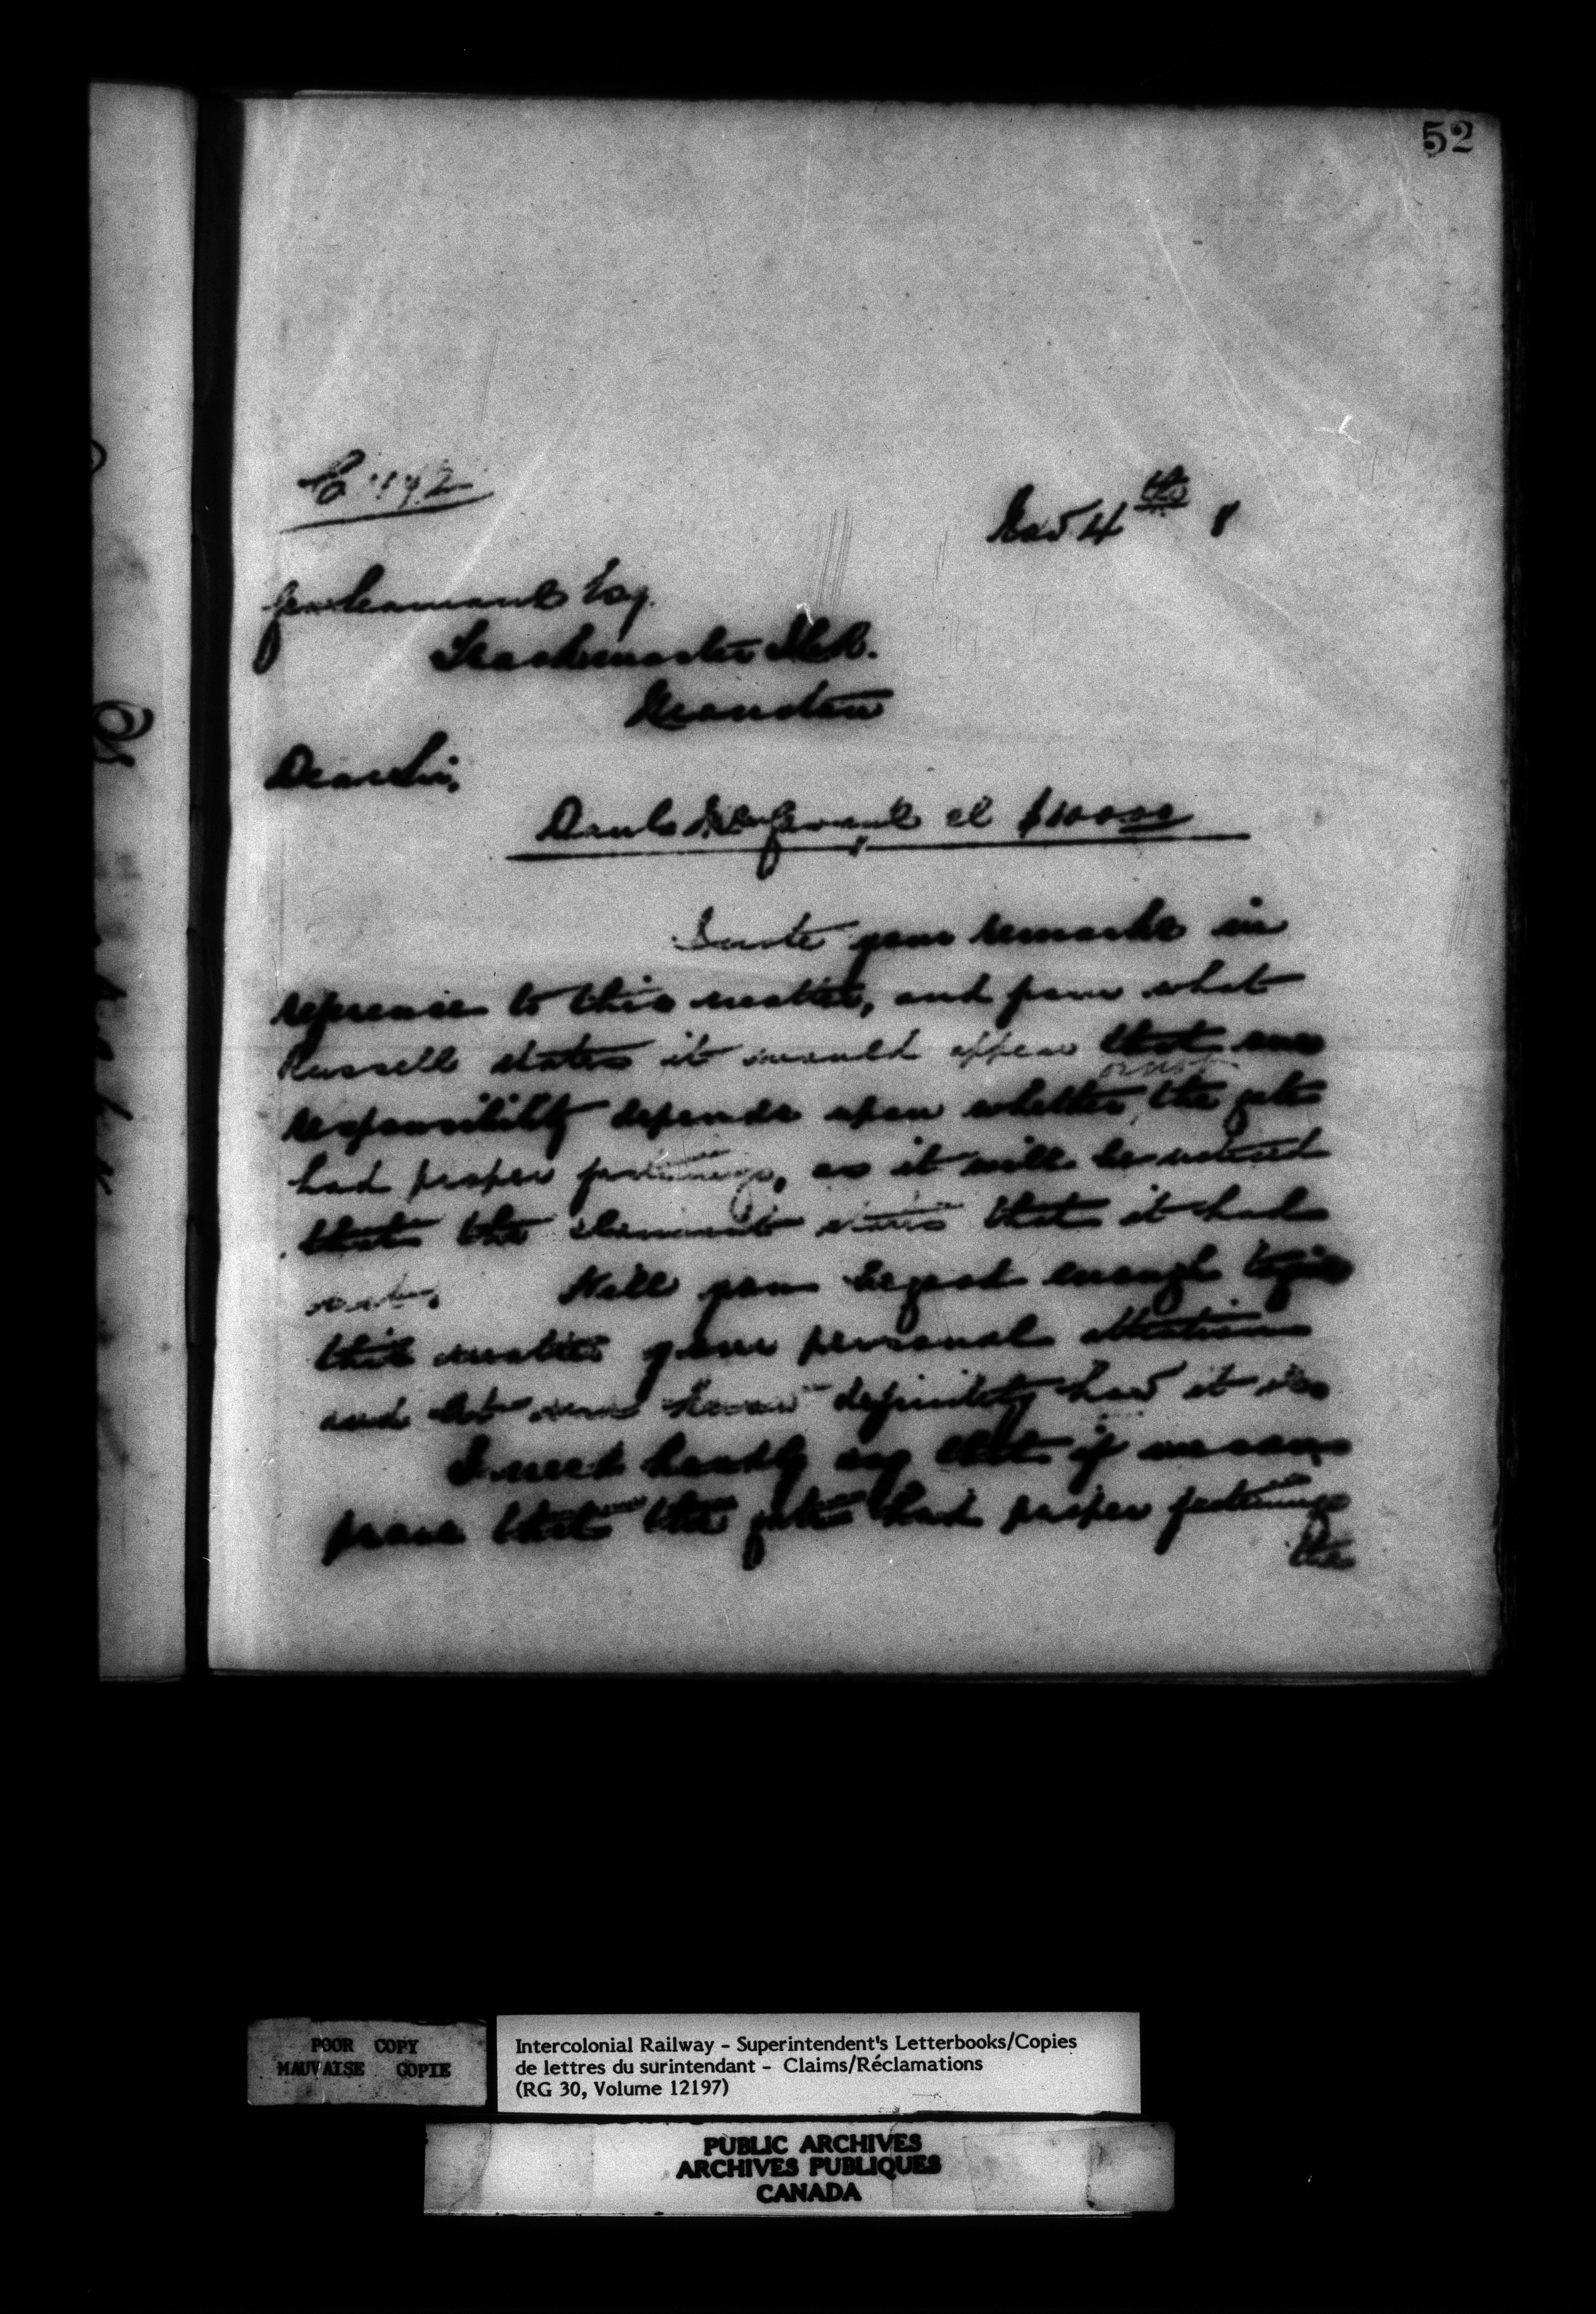 52
Nov 4th 8
Esq.
Trackmaster I.C.R.
Moncton
Dear Sir,
$100.00
I note your remarks in
reference to this matter, and from what
Russell states it would appear that our
responsibility depends upon whether or not the gate
had proper fastenings, as it will be noticed
that the claimant states that it had
not. Will you be good enough to give
this matter your personal attention
and let me know definitely how it is
I need hardly say that if we can
prove that the gate had proper fastenings
the
POOR COPY
MAUVAISE COPIE
Intercolonial Railway - Superintendent's Letterbooks/Copies
de lettres du surintendant - Claims/Réclamations
(RG 30, Volume 12197)
PUBLIC ARCHIVES
ARCHIVES PUBLIQUES
CANADA